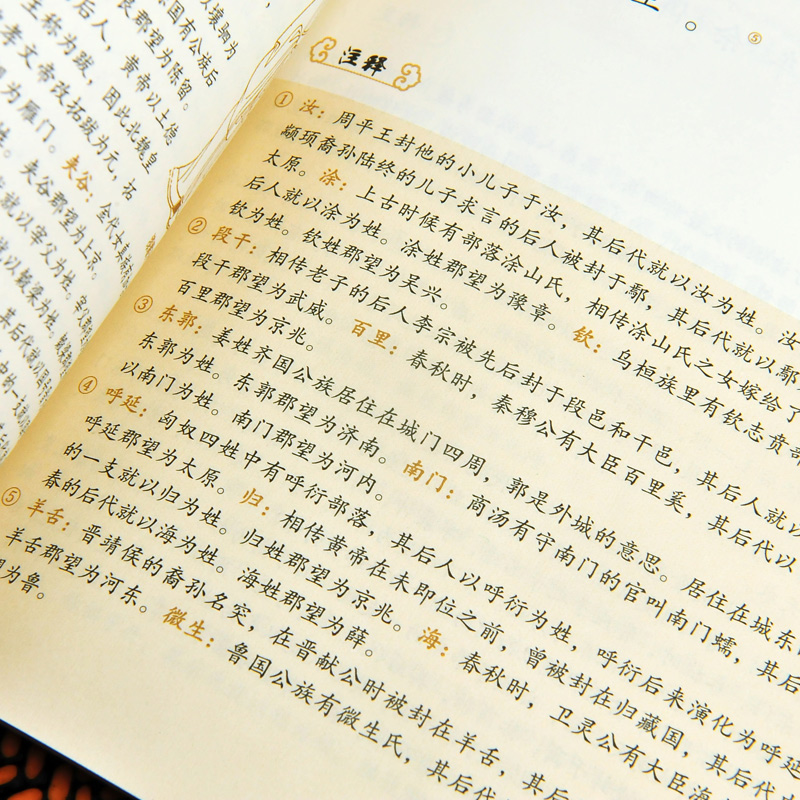 以壤驷为
国有公族后
良郡望为陈留。
后人，黄帝以土德
王称为跋，因此北魏皇
孝文帝改拓跋为元，拓
为雁门。夹谷：金代女真
姓。夹谷郡望为上京。
就以宰父为姓。
就以榖梁为姓。
⑤
注释
① 汝：周平王封他的小儿子于汝，其后代就以汝为姓。汝
颛顼裔孙陆终的儿子求言的后人被封于鄢，其后代就以鄢
太原。涂：上古时候有部落涂山氏，相传涂山氏之女嫁给了
后人就以涂为姓。涂姓郡望为豫章。钦：乌桓族里有钦志贲部
钦为姓。钦姓郡望为吴兴。
② 段干：相传老子的后人李宗被先后封于段邑和干邑，其后人就以
段干郡望为武威。百里：春秋时，秦穆公有大臣百里奚，其后代以
百里郡望为京兆。
③ 东郭：姜姓齐国公族居住在城门四周，郭是外城的意思。居住在城东
东郭为姓。东郭郡望为济南。南门：商汤有守南门的官叫南门蠕，其后
以南门为姓。南门郡望为河内。
④ 呼延：匈奴四姓中有呼衍部落，其后人以呼衍为姓，呼衍后来演化为呼延
呼延郡望为太原。归：相传黄帝在未即位之前，曾被封在归藏国，其后代
的一支就以归为姓。归姓郡望为京兆。海：春秋时，卫灵公有大臣海
春的后代就以海为姓。海姓郡望为薛。
⑤ 羊舌：晋靖侯的裔孙名突，在晋献公时被封在羊舌，其后
羊舌郡望为河东。微生：鲁国公族有微生氏，其后代
望为鲁。